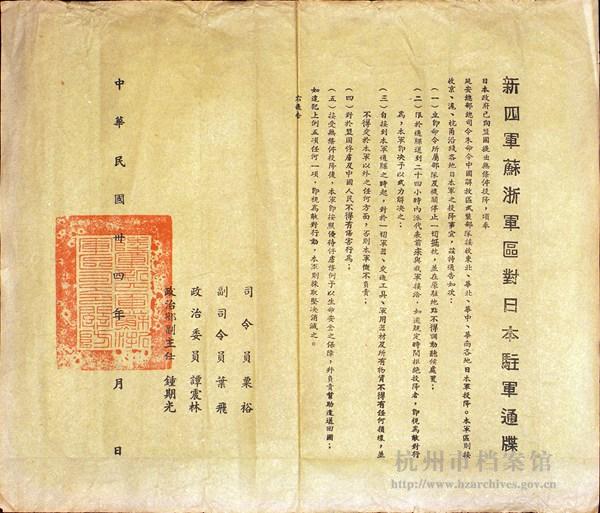 新四軍蘇浙軍區對日本駐軍通牒
日本政府已向盟國提出無條件投降，頃奉
延安總部總司令朱命令中國解放區武裝部隊接收東北、華北、華中、華南各地日本軍投降。本軍區則接
收京、滬、杭甬沿綫各地日本軍之投降事宜，茲特通告如次：
（一）立即命令所屬部隊及機關停止一切抵抗，並在原駐地點不得調動聽候處置；
（二）限於通牒送到二十四小時內派代表前來與我軍接洽，如逾規定時間拒絕投降者，即視為敵對行
為，本軍即決予以武力解決之；
（三）自接到本軍通牒之時起，對於一切軍器、交通工具、軍用器材及所有物資不得有任何損壞，並
不得交於本軍以外之任何方面，否則本軍概不負責；
（四）對於盟國俘虜及中國人民不得有傷害行為；
（五）接受無條件投降後，本軍即按照優待俘虜條例予以生命安全之保障，并負責幫助遣送回國；
如違犯上例五項任何一項，即視為敵對行動，本軍則採取堅決消滅之。
右通告
司令員粟裕
副司令員葉飛
政治委員譚震林
政治部副主任鍾期光
中華民國卅四年 月 日
杭州市档案馆
http://www.hzarchives.gov.cn